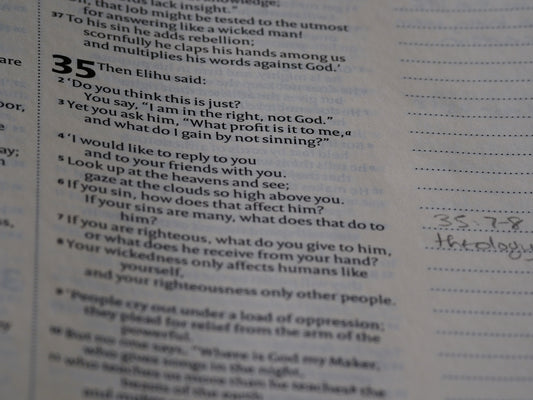 lack insight.”
that Job might be tested to the utmost
for answering like a wicked man!
37 To his sin he adds rebellion;
scornfully he claps his hands among us
and multiplies his words against God.’
35 Then Elihu said:
2 ‘Do you think this is just?
You say, “I am in the right, not God.”
3 Yet you ask him, “What profit is it to me,a
and what do I gain by not sinning?”
4 ‘I would like to reply to you
and to your friends with you.
5 Look up at the heavens and see;
gaze at the clouds so high above you.
6 If you sin, how does that affect him?
If your sins are many, what does that do to
him?
7 If you are righteous, what do you give to him,
or what does he receive from your hand?
8 Your wickedness only affects humans like
yourself,
and your righteousness only other people.
9 ‘People cry out under a load of oppression;
they plead for relief from the arm of the
powerful.
10 But no one says, “Where is God my Maker,
who gives songs in the night,
11 who teaches us more than he teaches the
beasts of the earth
are
35:7-8
theology